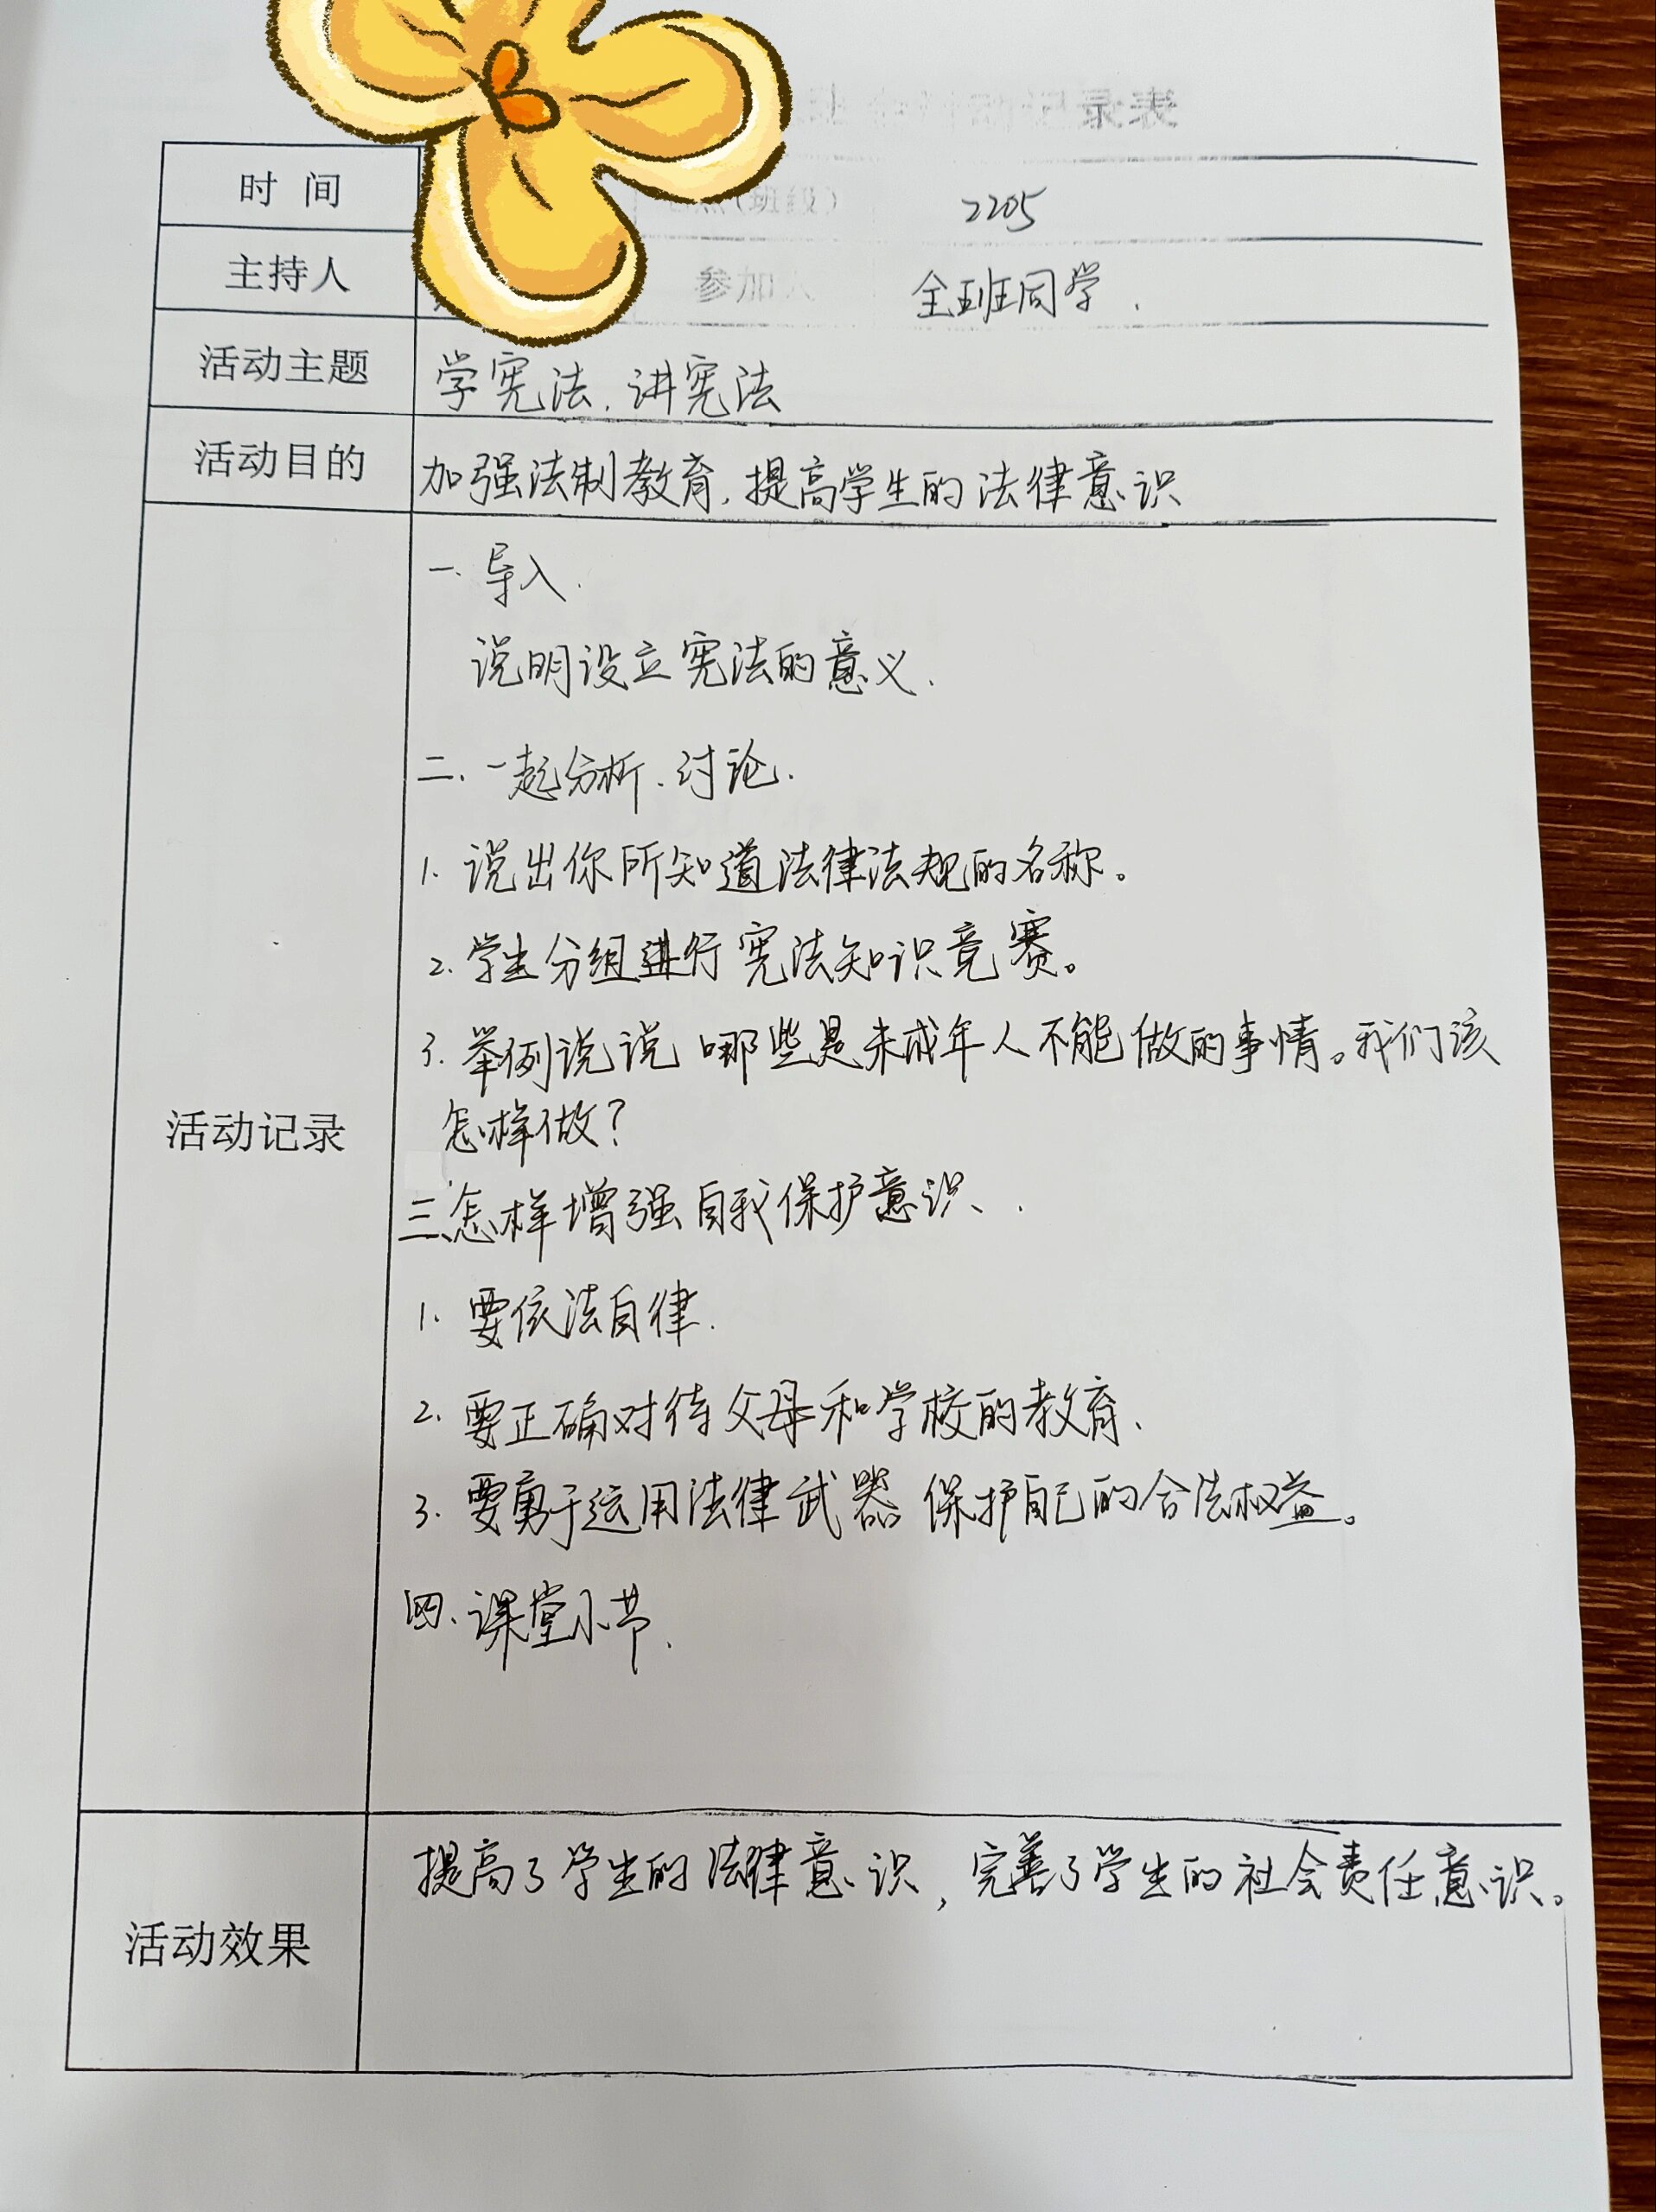 录表
时 间
（班级） 2205
主持人 参加人 全班同学.
活动主题 学宪法.讲宪法
活动目的 加强法制教育.提高学生的法律意识
一.导入.
说明设立宪法的意义.
二.一起分析.讨论.
1. 说出你所知道法律法规的名称。
2. 学生分组进行宪法知识竞赛。
3. 举例说说哪些是未成年人不能做的事情。我们该
怎样做?
活动记录
三、怎样增强自我保护意识、.
1. 要依法自律.
2. 要正确对待父母和学校的教育.
3. 要勇于运用法律武器保护自己的合法权益。
四.课堂小节.
提高了学生的法律意识,完善了学生的社会责任意识。
活动效果